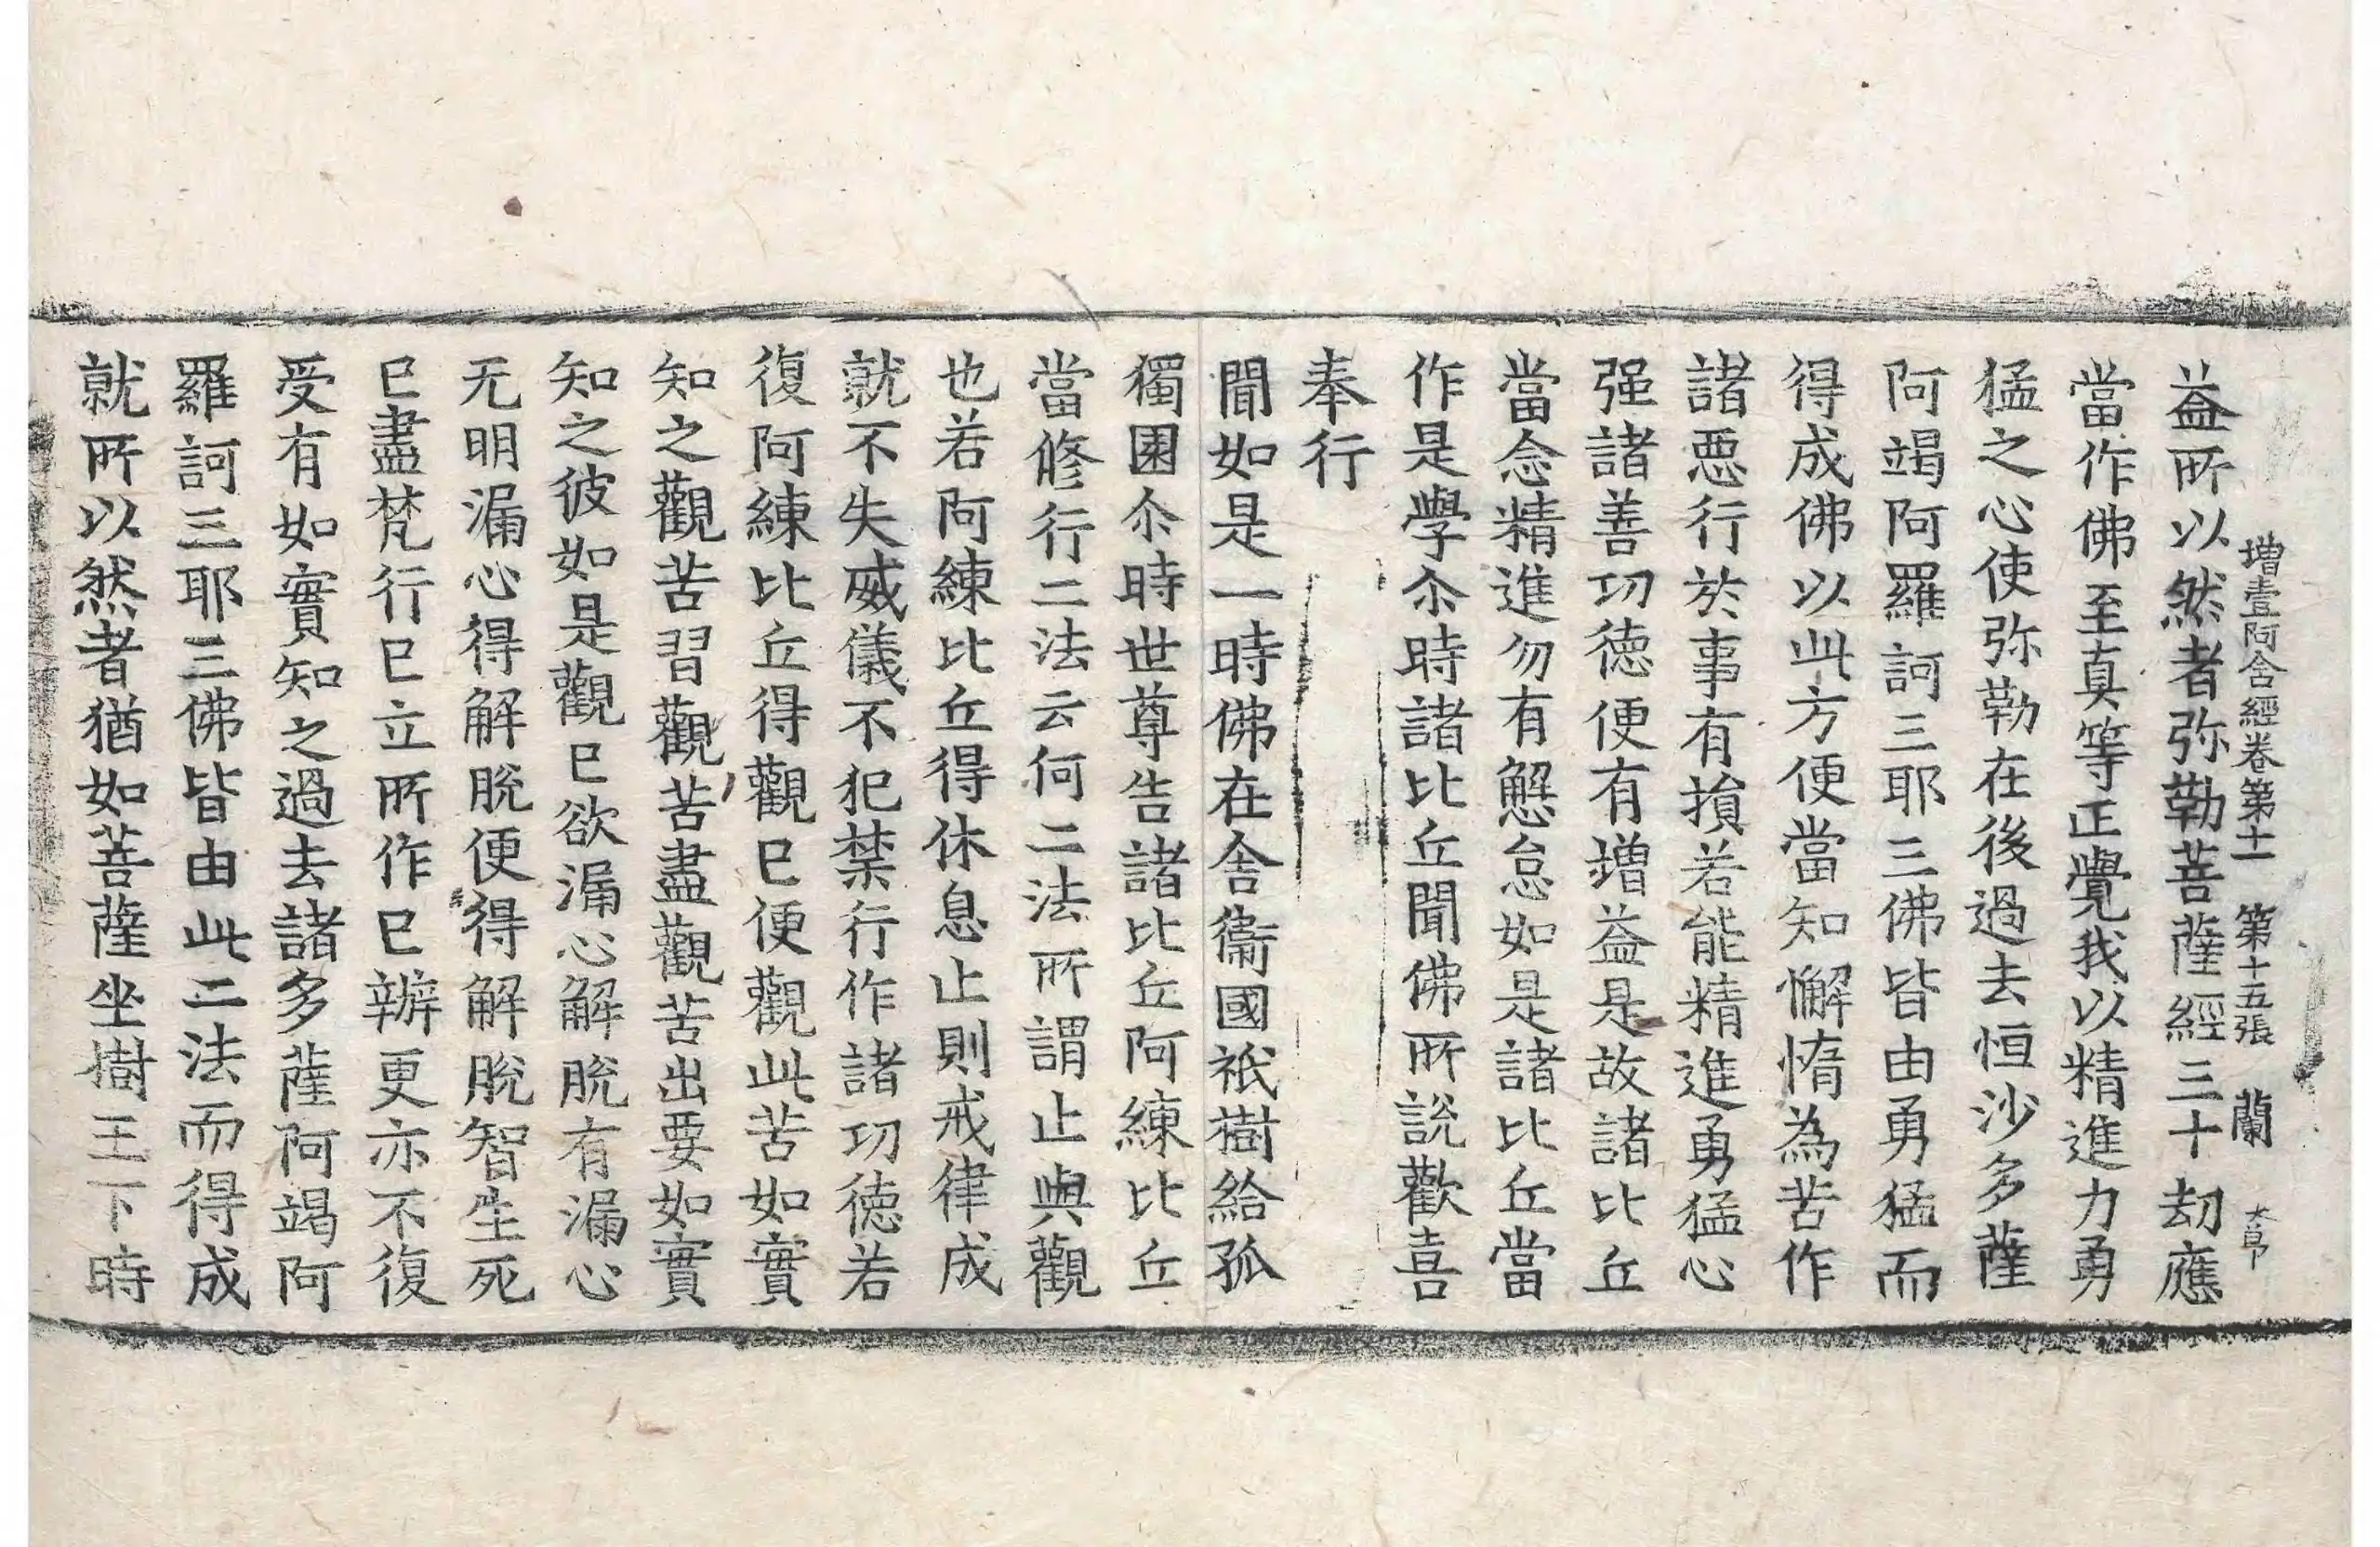 益所以然者弥勒菩薩經三十劫應
增壹阿含經卷第十一 第十五張 蘭
當作佛至真等正覺我以精進力勇
猛之心使弥勒在後過去恒沙多薩
阿竭阿羅訶三耶三佛皆由勇猛而
得成佛以此方便當知懈惰為苦作
諸惡行於事有損若能精進勇猛心
强諸善功德便有增益是故諸比丘
當念精進勿有懈怠如是諸比丘當
作是學尒時諸比丘聞佛所說歡喜
奉行
聞如是一時佛在舍衞國祇樹給孤
獨園尒時世尊告諸比丘阿練比丘
當修行二法云何二法所謂止與觀
也若阿練比丘得休息止則戒律成
就不失威儀不犯禁行作諸功德若
復阿練比丘得觀已便觀此苦如實
知之觀苦習觀苦盡觀苦出要如實
知之彼如是觀已欲漏心解脫有漏心
无明漏心得解脫便得解脫智生死
已盡梵行已立所作已辦更亦不復
受有如實知之過去諸多薩阿竭阿
羅訶三耶三佛皆由此二法而得成
就所以然者猶如菩薩坐樹王下時